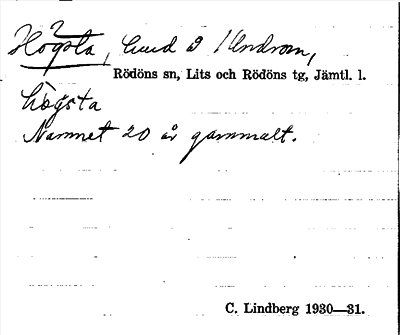 Högsta, lund å Undrom,
Rödöns sn, Lits och Rödöns tg, Jämtl. l.
högsta
Namnet 20 år gammalt.
C. Lindberg 1930—31.